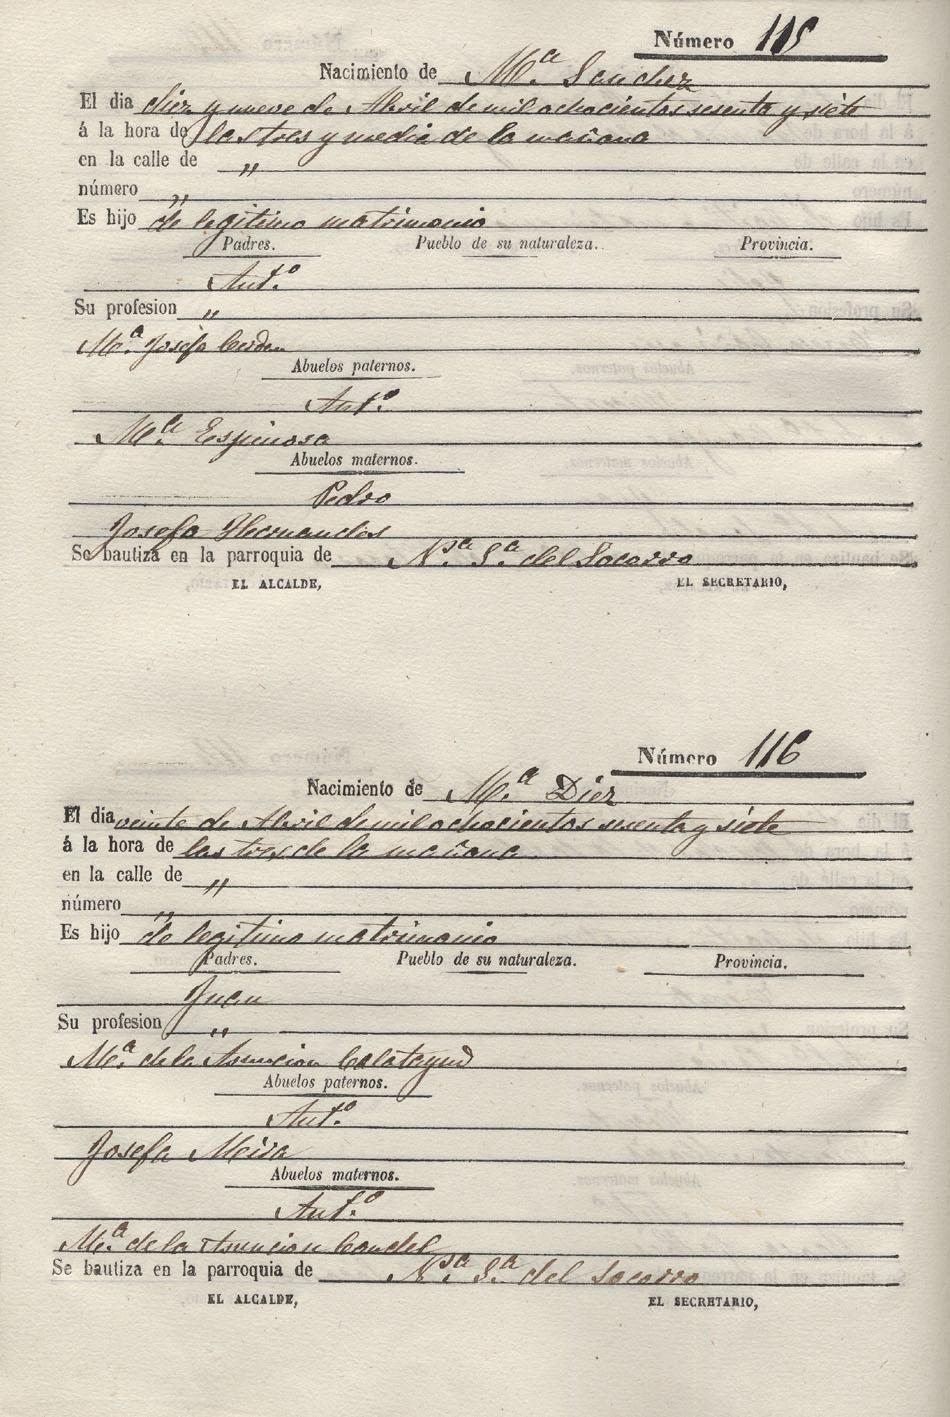 Número 115
Nacimiento de Mª. Sanchez
El dia diez y nueve de Abril de mil ochocientos sesenta y siete
á la hora de las tres y media de la mañana
en la calle de "
número "
Es hijo de legitimo matrimonio
Padres. Pueblo de su naturaleza. Provincia.
Antº.
Su profesion "
Mª. Josefa Cerdan
Abuelos paternos.
Antº.
Mª. Espinosa
Abuelos maternos.
Pedro
Josefa Hernandes
Se bautiza en la parroquia de Nsª. Sª. del Socorro
EL ALCALDE, EL SECRETARIO,
Número 116
Nacimiento de Mª. Diez
El dia veinte de Abril de mil ochocientos sesenta y siete
á la hora de las tres de la mañana
en la calle de "
número "
Es hijo de legitimo matrimonio
Padres. Pueblo de su naturaleza. Provincia.
Juan
Su profesion "
Mª. de la Asuncion Calatayud
Abuelos paternos.
Antº.
Josefa Mira
Abuelos maternos.
Antº.
Mª. de la Asuncion Candel
Se bautiza en la parroquia de Nsª. Sª. del Socorro
EL ALCALDE, EL SECRETARIO,